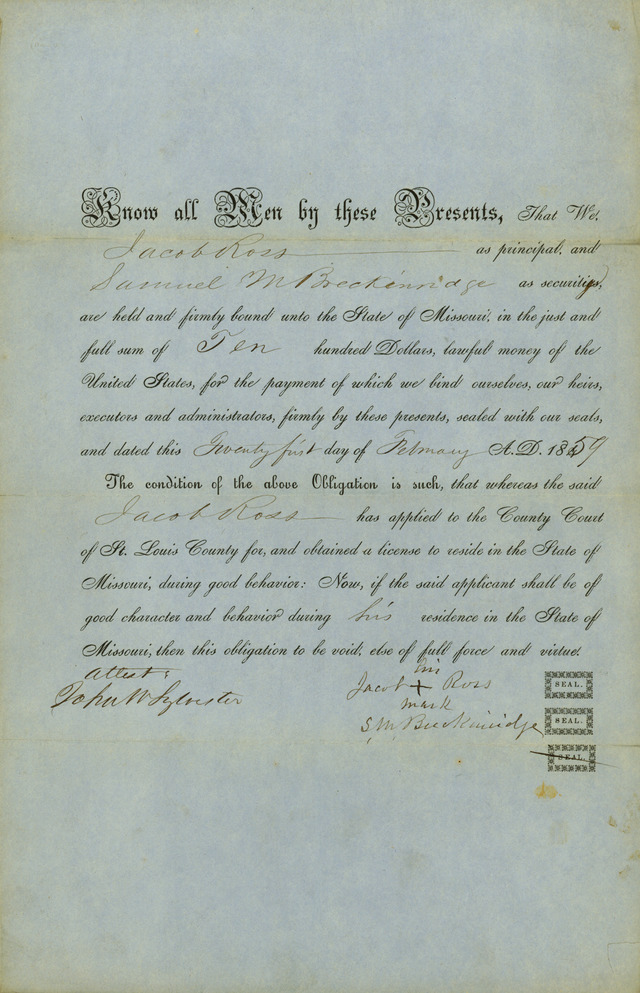 Know all Men by these Presents, That We,
Jacob Ross as principal, and
Samuel M Breckinridge as securities,
are held and firmly bound unto the State of Missouri, in the just and
full sum of Ten hundred Dollars, lawful money of the
United States, for the payment of which we bind ourselves, our heirs,
executors and administrators, firmly by these presents, sealed with our seals,
and dated this Twenty first day of February A.D. 1859
The condition of the above Obligation is such, that whereas the said
Jacob Ross has applied to the County Court
of St. Louis County for, and obtained a license to reside in the State of
Missouri, during good behavior: Now, if the said applicant shall be of
good character and behavior during his residence in the State of
Missouri, then this obligation to be void, else of full force and virtue.
Attest: his
John W Sylvester Jacob + Ross SEAL.
mark
S, M Breckinridge SEAL.
SEAL.